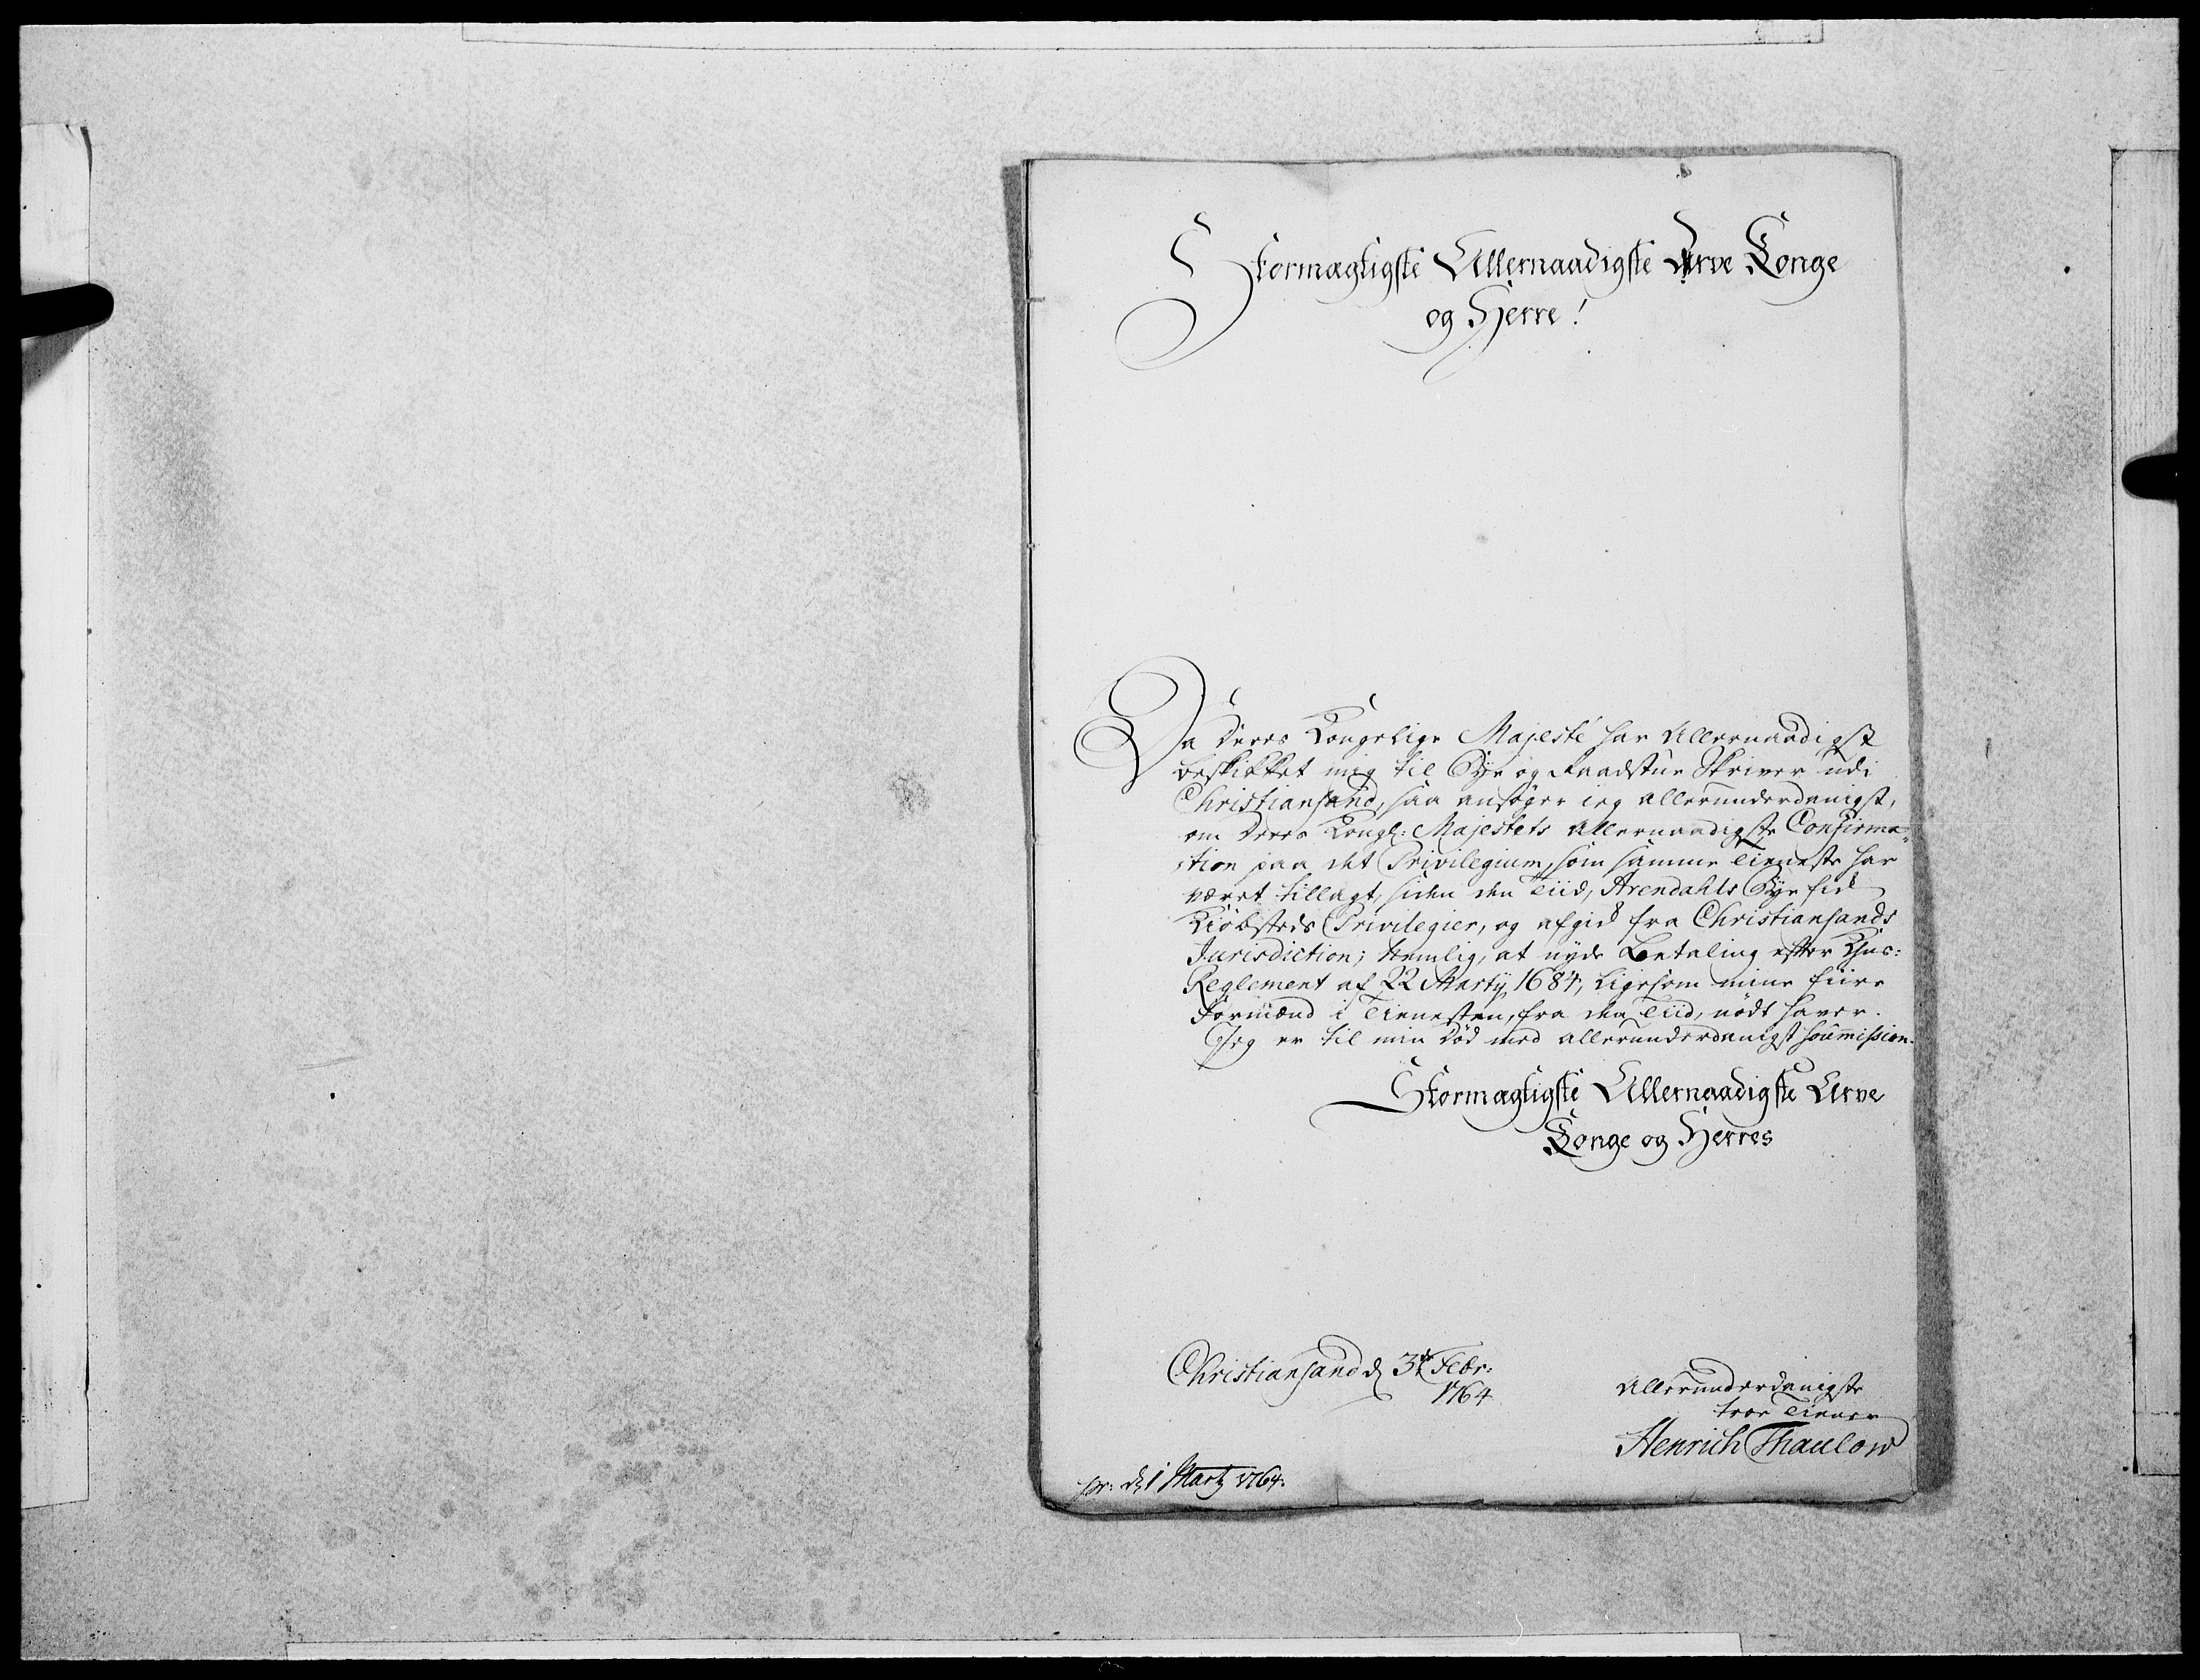 Stormægtigste Allernaadigste Arve Konge
og Herre!
Da Deres Kongelige Majesté har Allernaadigst
beskikket mig til Bye og Raadstue Skriver udi
Christiansand, saa ansøger ieg allerunderdanigst,
om Deres Kongl: Majestets Allernaadigste Confirma-
tion paa det Privilegium, som samme Tieneste har
været tillagt, siden den Tiid, Arendahls Bye fik
Kiøbsteds Privilegier, og afgik fra Christiansands
Jurisdiction; Nemlig, at nyde Betaling efter
Reglement af 22 Martÿ 1684, ligesom mine fiire
Formænd i Tienesten, fra den Tiid, nødt haver.
Jeg er til min Död med allerunderdanigst soumission.
Stormægtigste Allernaadigste Arve
Konge og Herres
Christiansand d 3de Febr:
1764
Allerunderdanigste
troe Tiener
Henrich Thaulow
pr: d 1 Martz 1764.